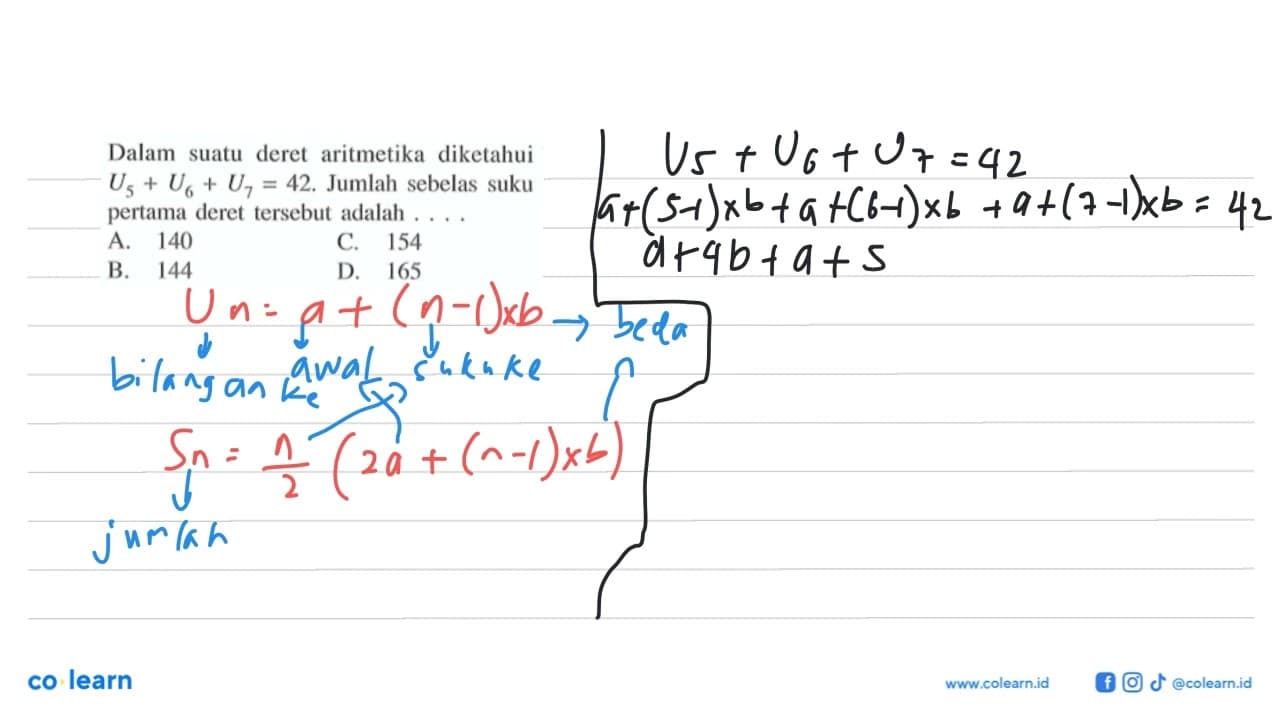 Dalam suatu deret aritmetika diketahui
U₅ + U₆ + U₇ = 42. Jumlah sebelas suku
pertama deret tersebut adalah . . . .
A. 140 C. 154
B. 144 D. 165
Un = a + (n-1)xb → beda
bilangan ke awal suku ke
Sn = n/2 (2a + (n-1)xb)
jumlah
U5 + U6 + U7 = 42
a+(5-1)xb+a+(6-1)xb +a+(7-1)xb = 42
a+4b+a+5
co learn
www.colearn.id @colearn.id